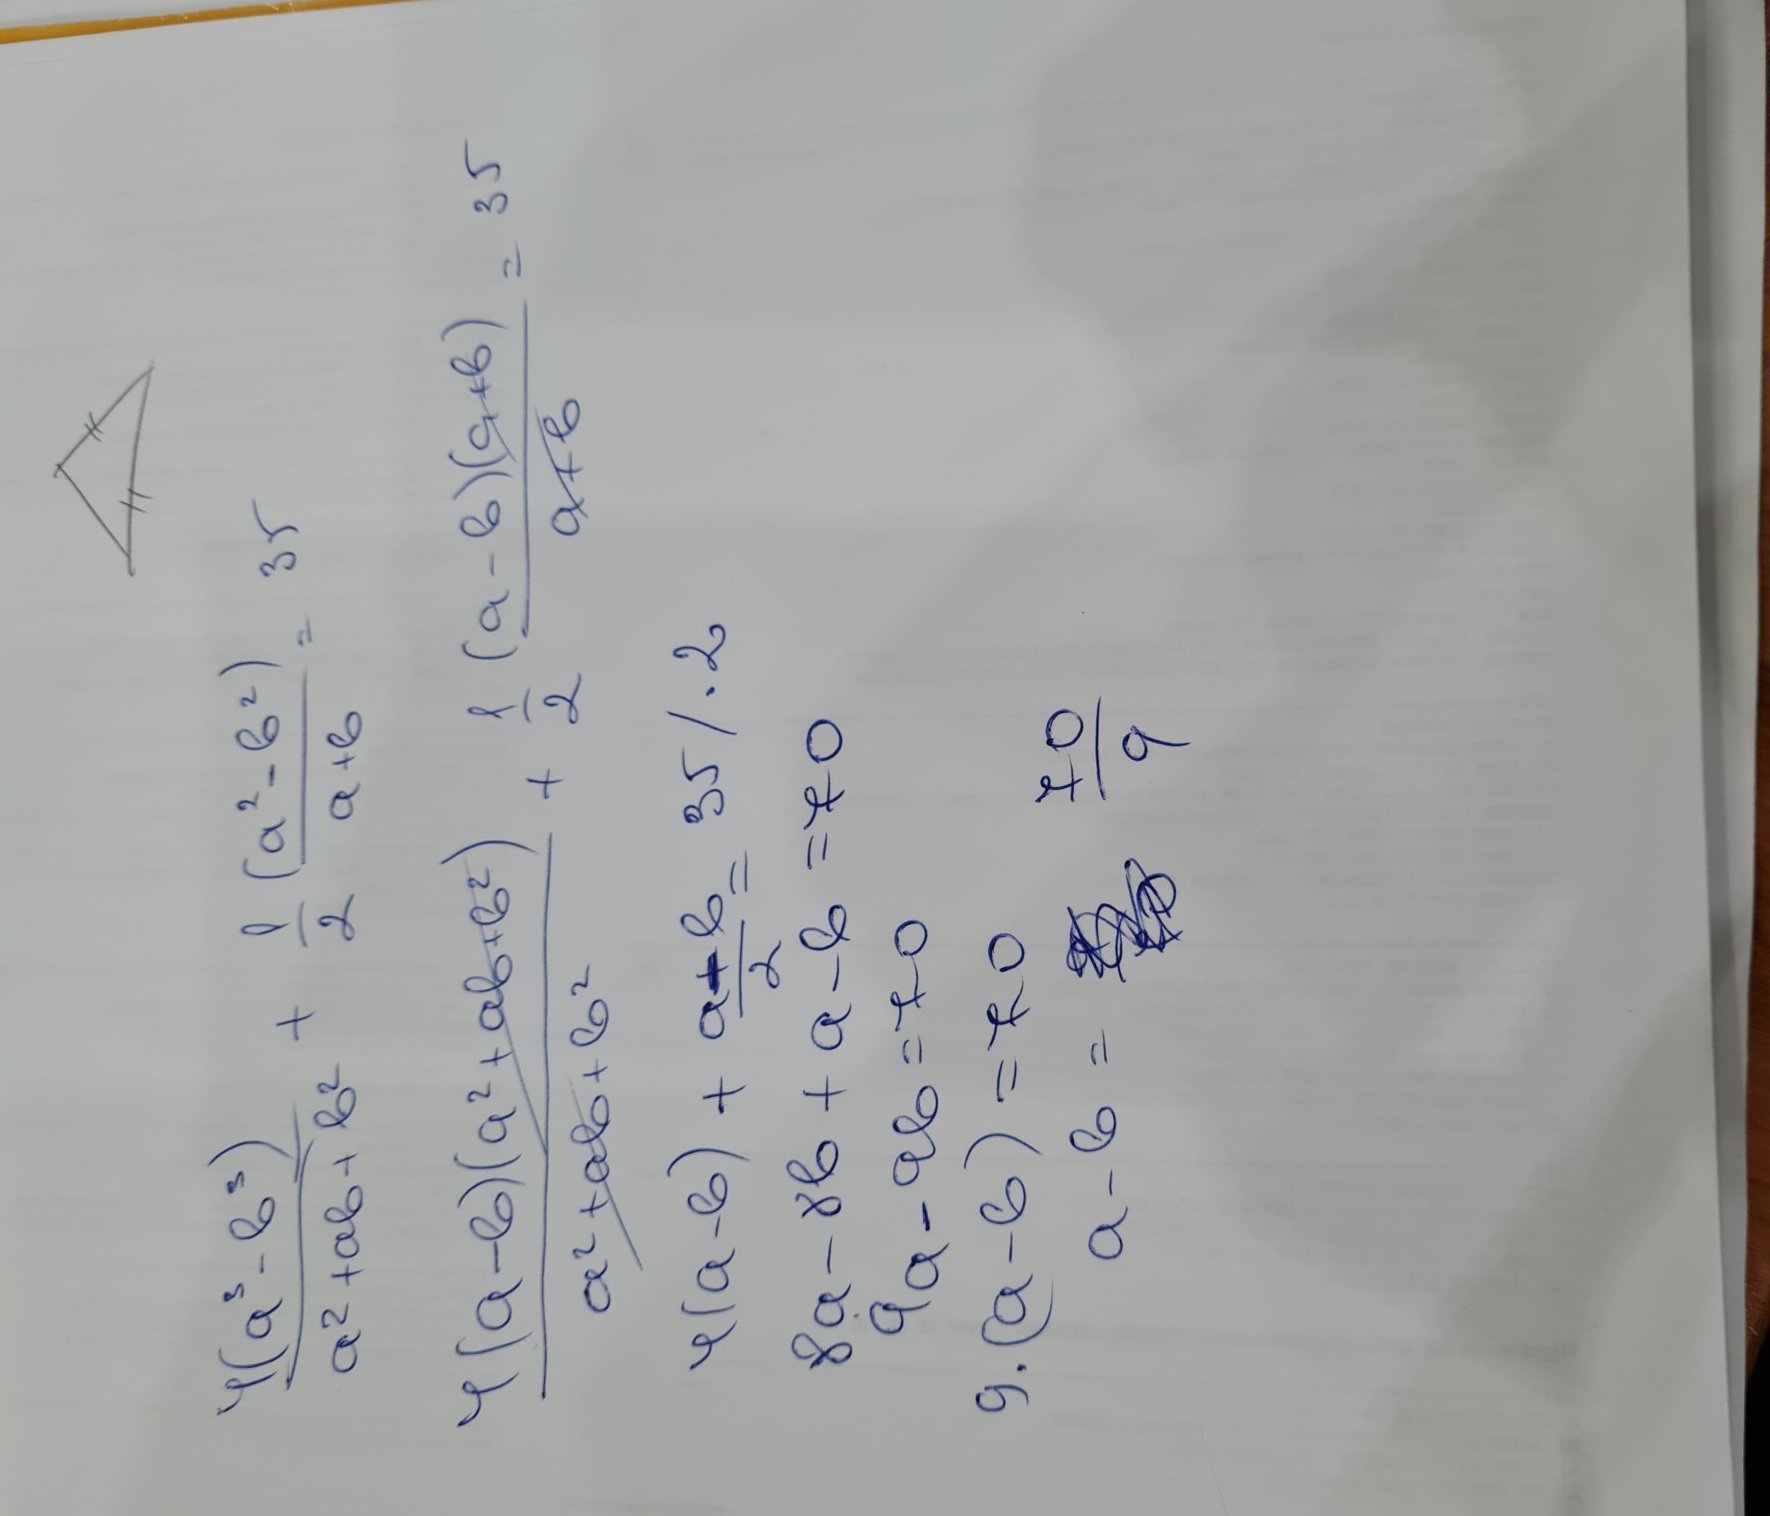 4(a³-b³)/(a²+ab+b²) + 1/2 (a²-b²)/(a+b) = 35
4(a-b)(a²+ab+b²)/(a²+ab+b²) + 1/2 (a-b)(a+b)/(a+b) = 35
4(a-b) + (a-b)/2 = 35 /.2
8a-8b+a-b=70
9a-9b=70
9.(a-b)=70
a-b = 70/9